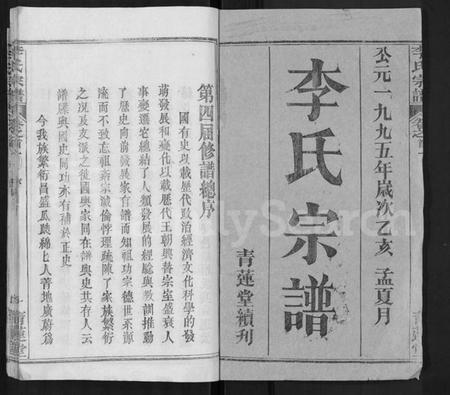 公元一九九五年歲次乙亥 孟夏月
李氏宗譜
青蓮堂續刊
第四屆修譜總序
國有史以載歷代政治經濟文化科學的發
萌發展和變化以載歷代王朝興替宗室盛衰人
事變遷它總結了人類發展的經驗與教訓推動
了歷史向前發展家有譜而知祖功宗德世系源
流而不致忘祖
宗誠倫悖理疏陳了家族繁衍
之況及支派之從國與家同在譜與史共有人云
譜牒與國史同功亦有補於正史
今我族繁衍昌盛瓜瓞綿綿上人普地廣蔚為
李氏宗譜
卷之首
序
青蓮堂